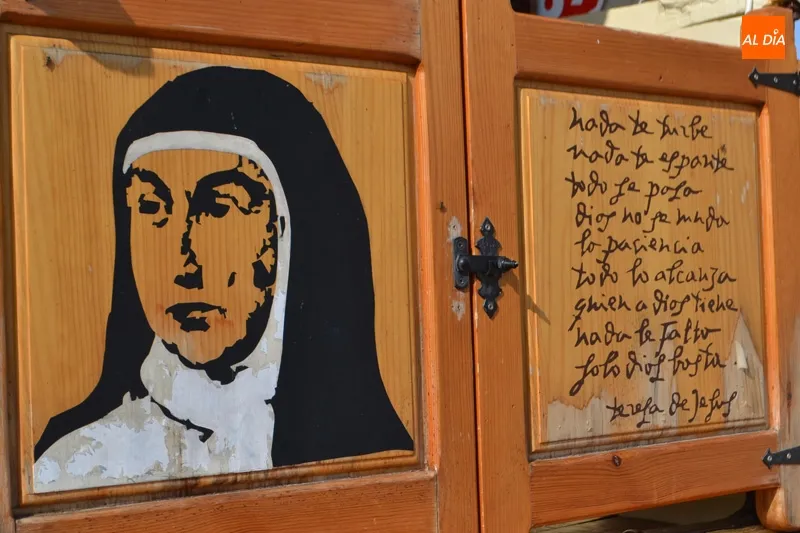 AL DÍA
nada te turbe
nada te espante
todo se pasa
dios no se muda
la paciencia
todo lo alcanza
quien a dios tiene
nada le falta
solo dios basta
teresa de Jesus